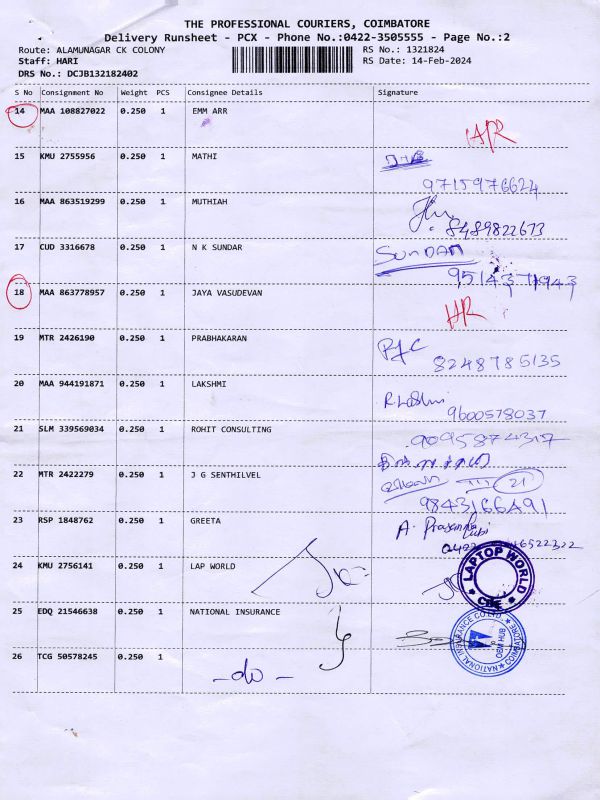 THE PROFESSIONAL COURIERS, COIMBATORE
Delivery Runsheet - PCX - Phone No.:0422-3505555 - Page No.:2
Route: ALAMUNAGAR CK COLONY RS No.: 1321824
Staff: HARI RS Date: 14-Feb-2024
DRS No.: DCJB132182402
S No Consignment No Weight PCS Consignee Details Signature
14 MAA 108827022 0.250 1 EMM ARR
15 KMU 2755956 0.250 1 MATHI
9715976624
16 MAA 863519299 0.250 1 MUTHIAH
8489822673
17 CUD 3316678 0.250 1 N K SUNDAR SUNDAR
18 MAA 863778957 0.250 1 JAYA VASUDEVAN
19 MTR 2426190 0.250 1 PRABHAKARAN
8248785135
20 MAA 944191871 0.250 1 LAKSHMI
9600578037
21 SLM 339569034 0.250 1 ROHIT CONSULTING
9095874317
22 MTR 2422279 0.250 1 J G SENTHILVEL 21
9843166491
23 RSP 1848762 0.250 1 GREETA A. Prasanna
24 KMU 2756141 0.250 1 LAP WORLD
LAPTOP WORLD
CBE
25 EDQ 21546638 0.250 1 NATIONAL INSURANCE
NATIONAL INSURANCE CO.LTD
COIMBATORE
26 TCG 50578245 0.250 1
- do -